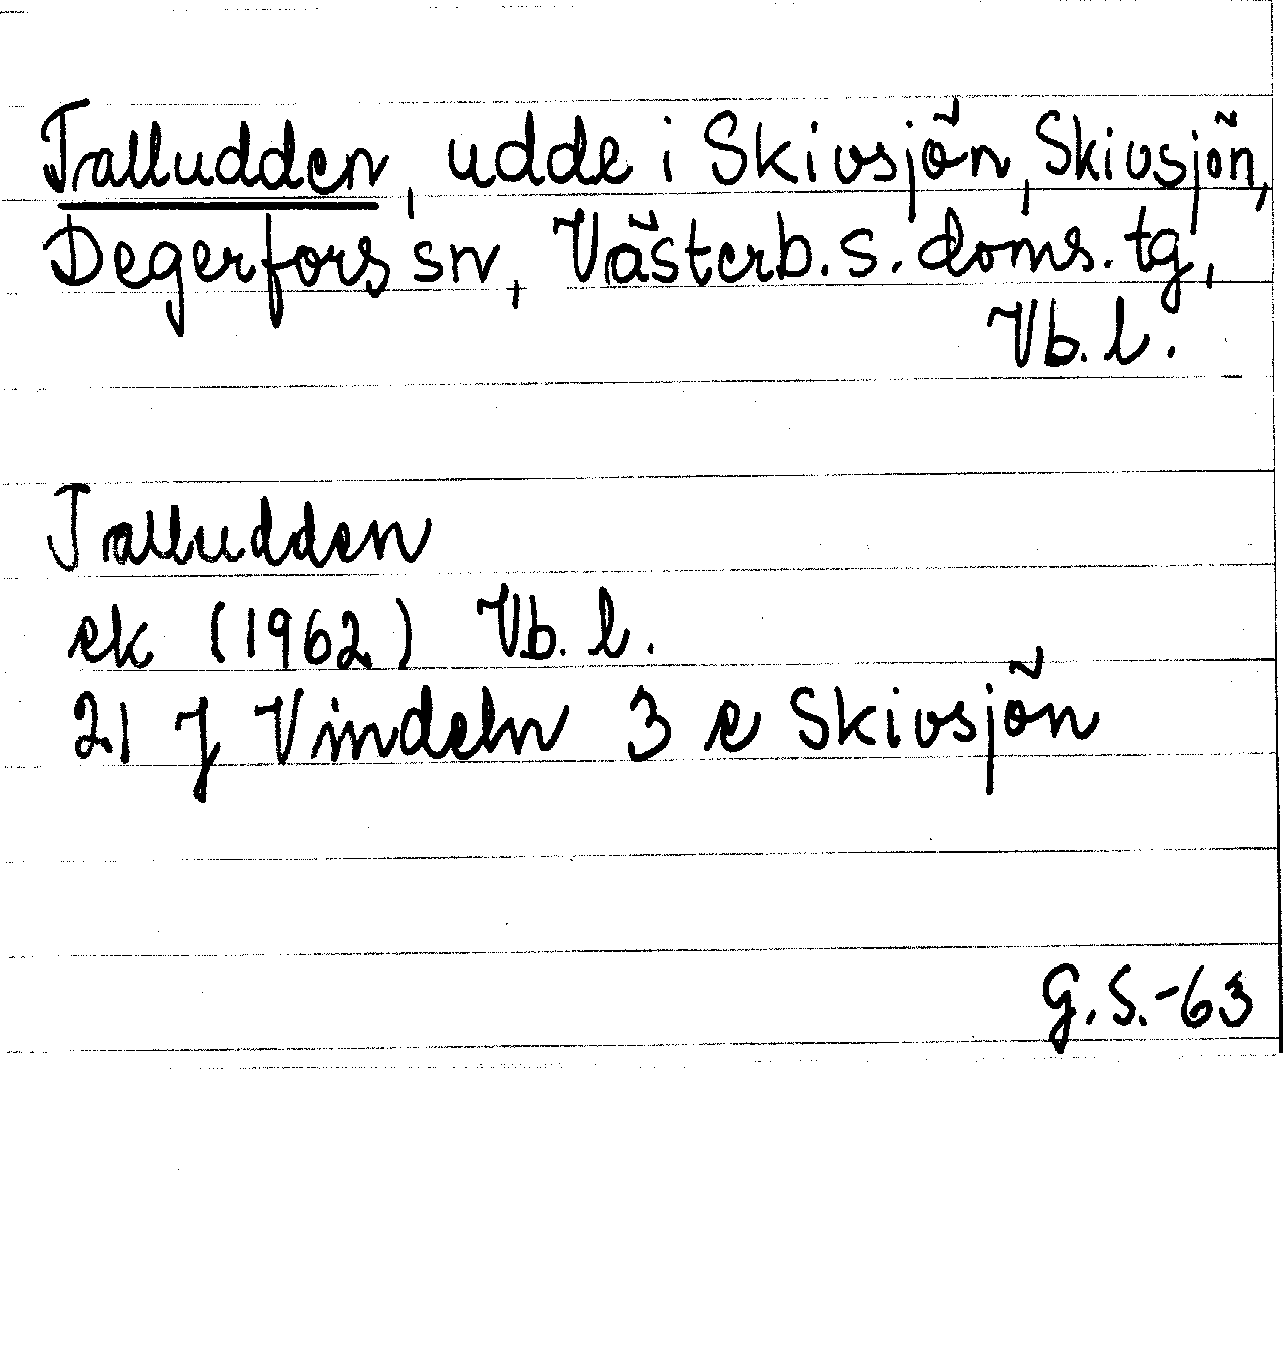 Talludden, udde i Skivsjön, Skivsjön,
Degerfors sn, Västerb. s. doms. tg,
Vb. l.
Talludden
ek (1962) Vb. l.
21 J Vindeln 3 e Skivsjön
G.S.-63